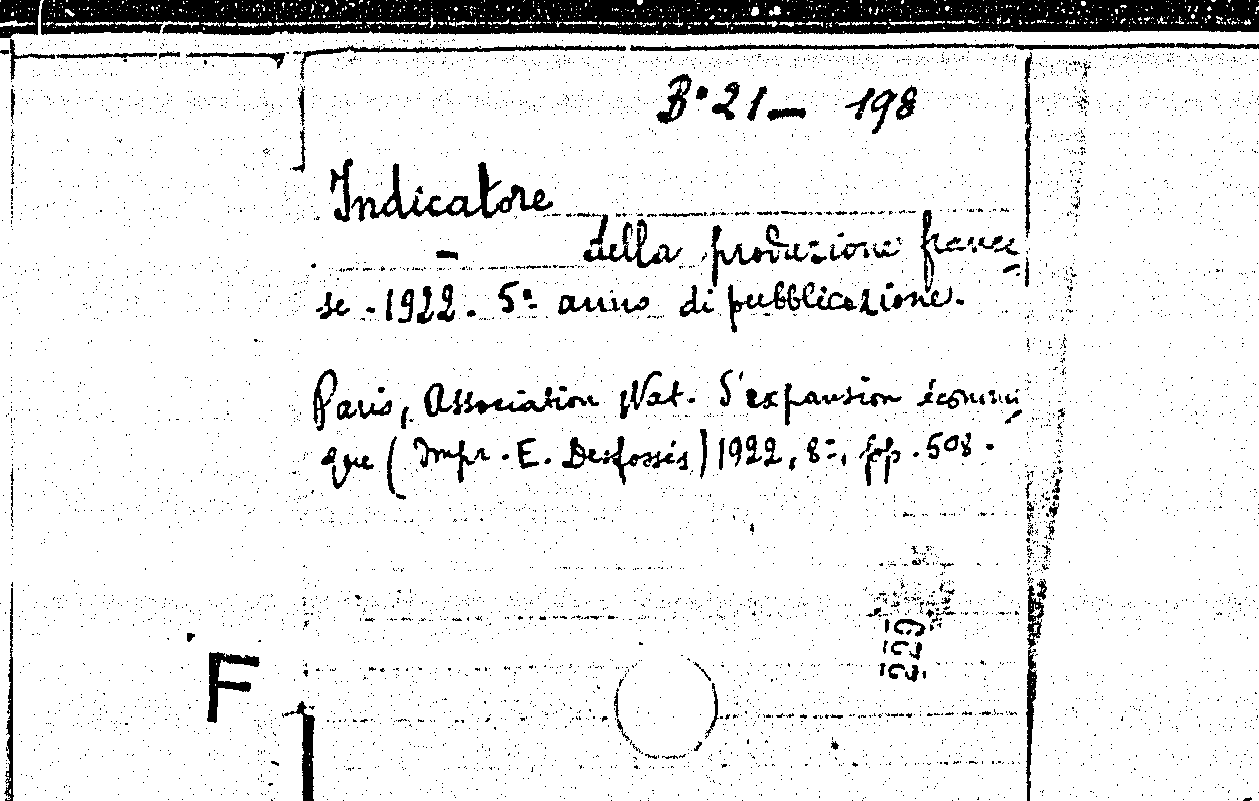 B° 21 — 198
Indicatore
— della produzione france
se . 1922 . 5° anno di pubblicazione.
Paris, Association Nat. d'expansion économi
que ( Impr . E. Desfossés ) 1922, 8°, pp . 508 .
229
F